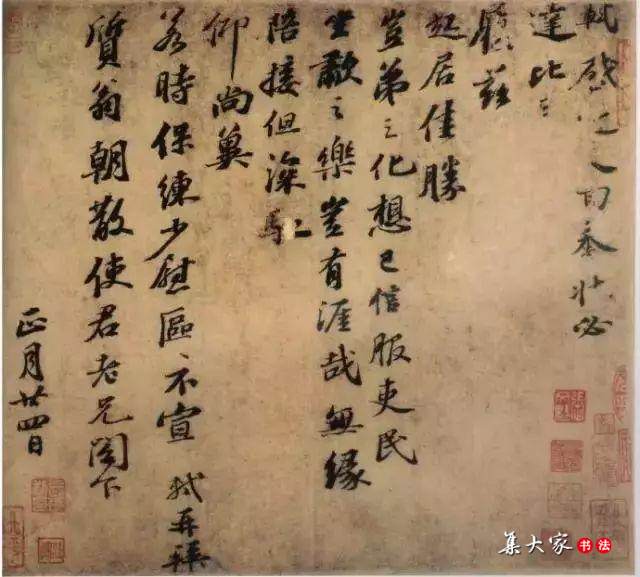 軾啟近人回奉狀必
達比日
履茲
起居佳勝
豈弟之化想已信服吏民
坐歗之樂豈有涯哉無緣
陪接但深馳
仰尚冀
若時保練少慰區〻不宣 軾再拜
質翁朝散使君老兄閣下
正月廿四日
集大家书法